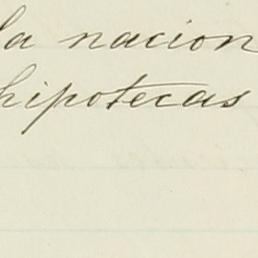 la nacion
hipotecas